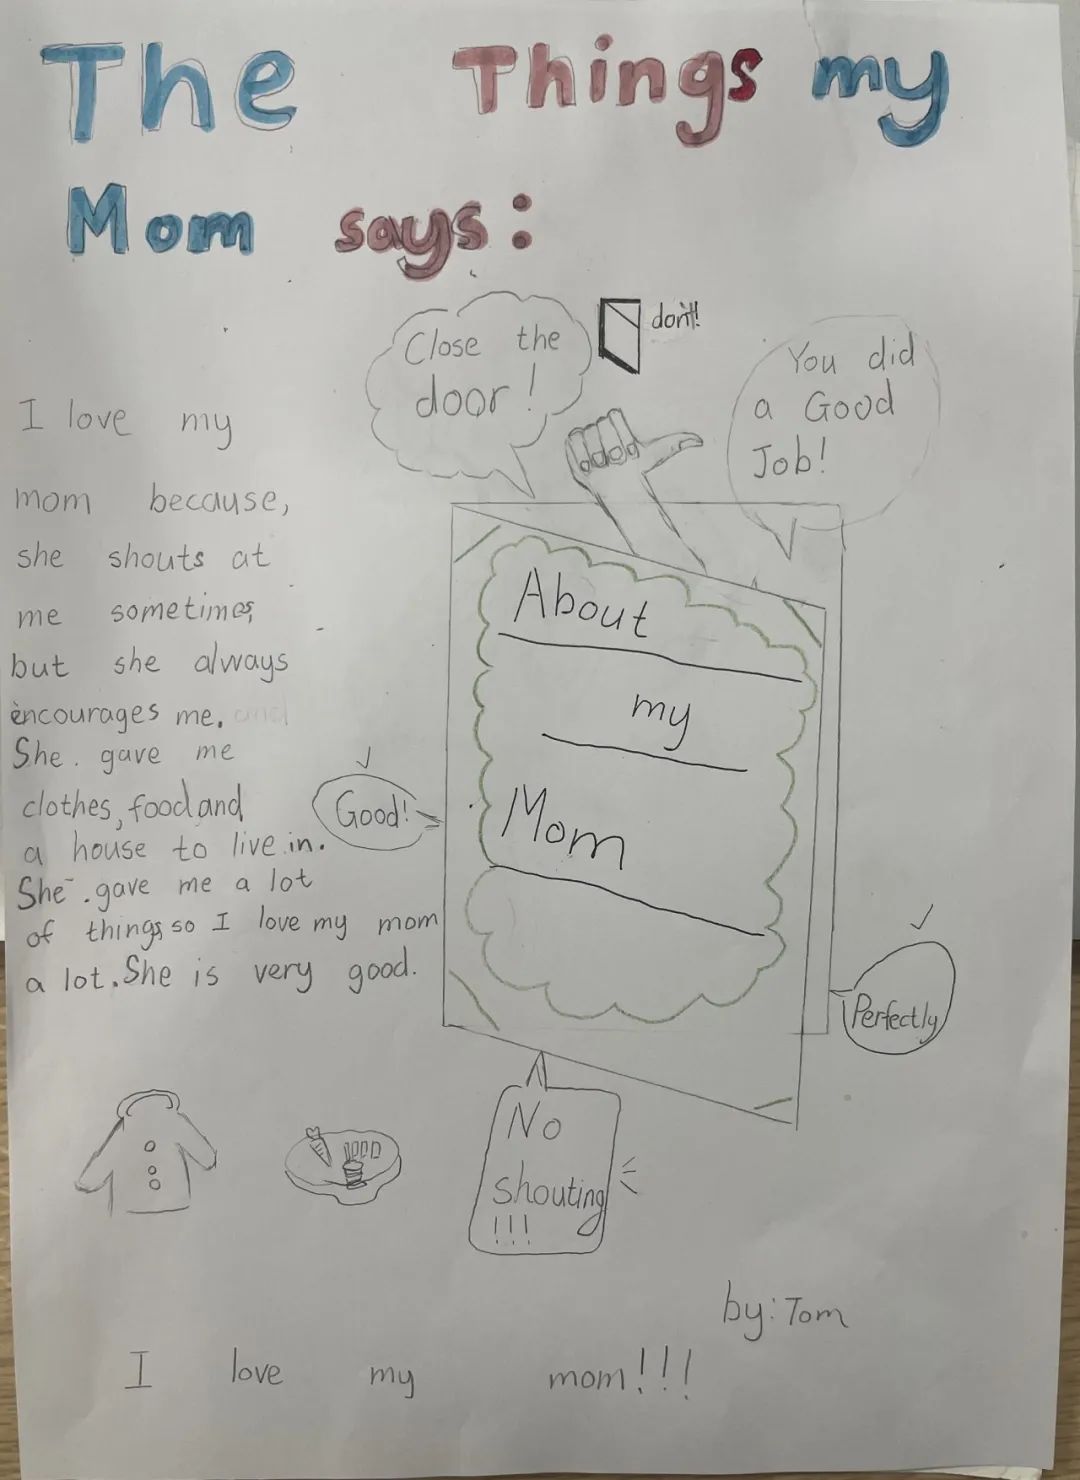 The Things my
Mom says:
Close the
door!
don't!
You did
a Good
Job!
I love my
mom because,
she shouts at
me sometimes,
but she always
encourages me. and
She. gave me
clothes, food and
a house to live in.
She .gave me a lot
of things so I love my mom
a lot. She is very good.
About
my
Mom
Good!
Perfectly
No
shouting
!!!
by: Tom
I love my mom!!!